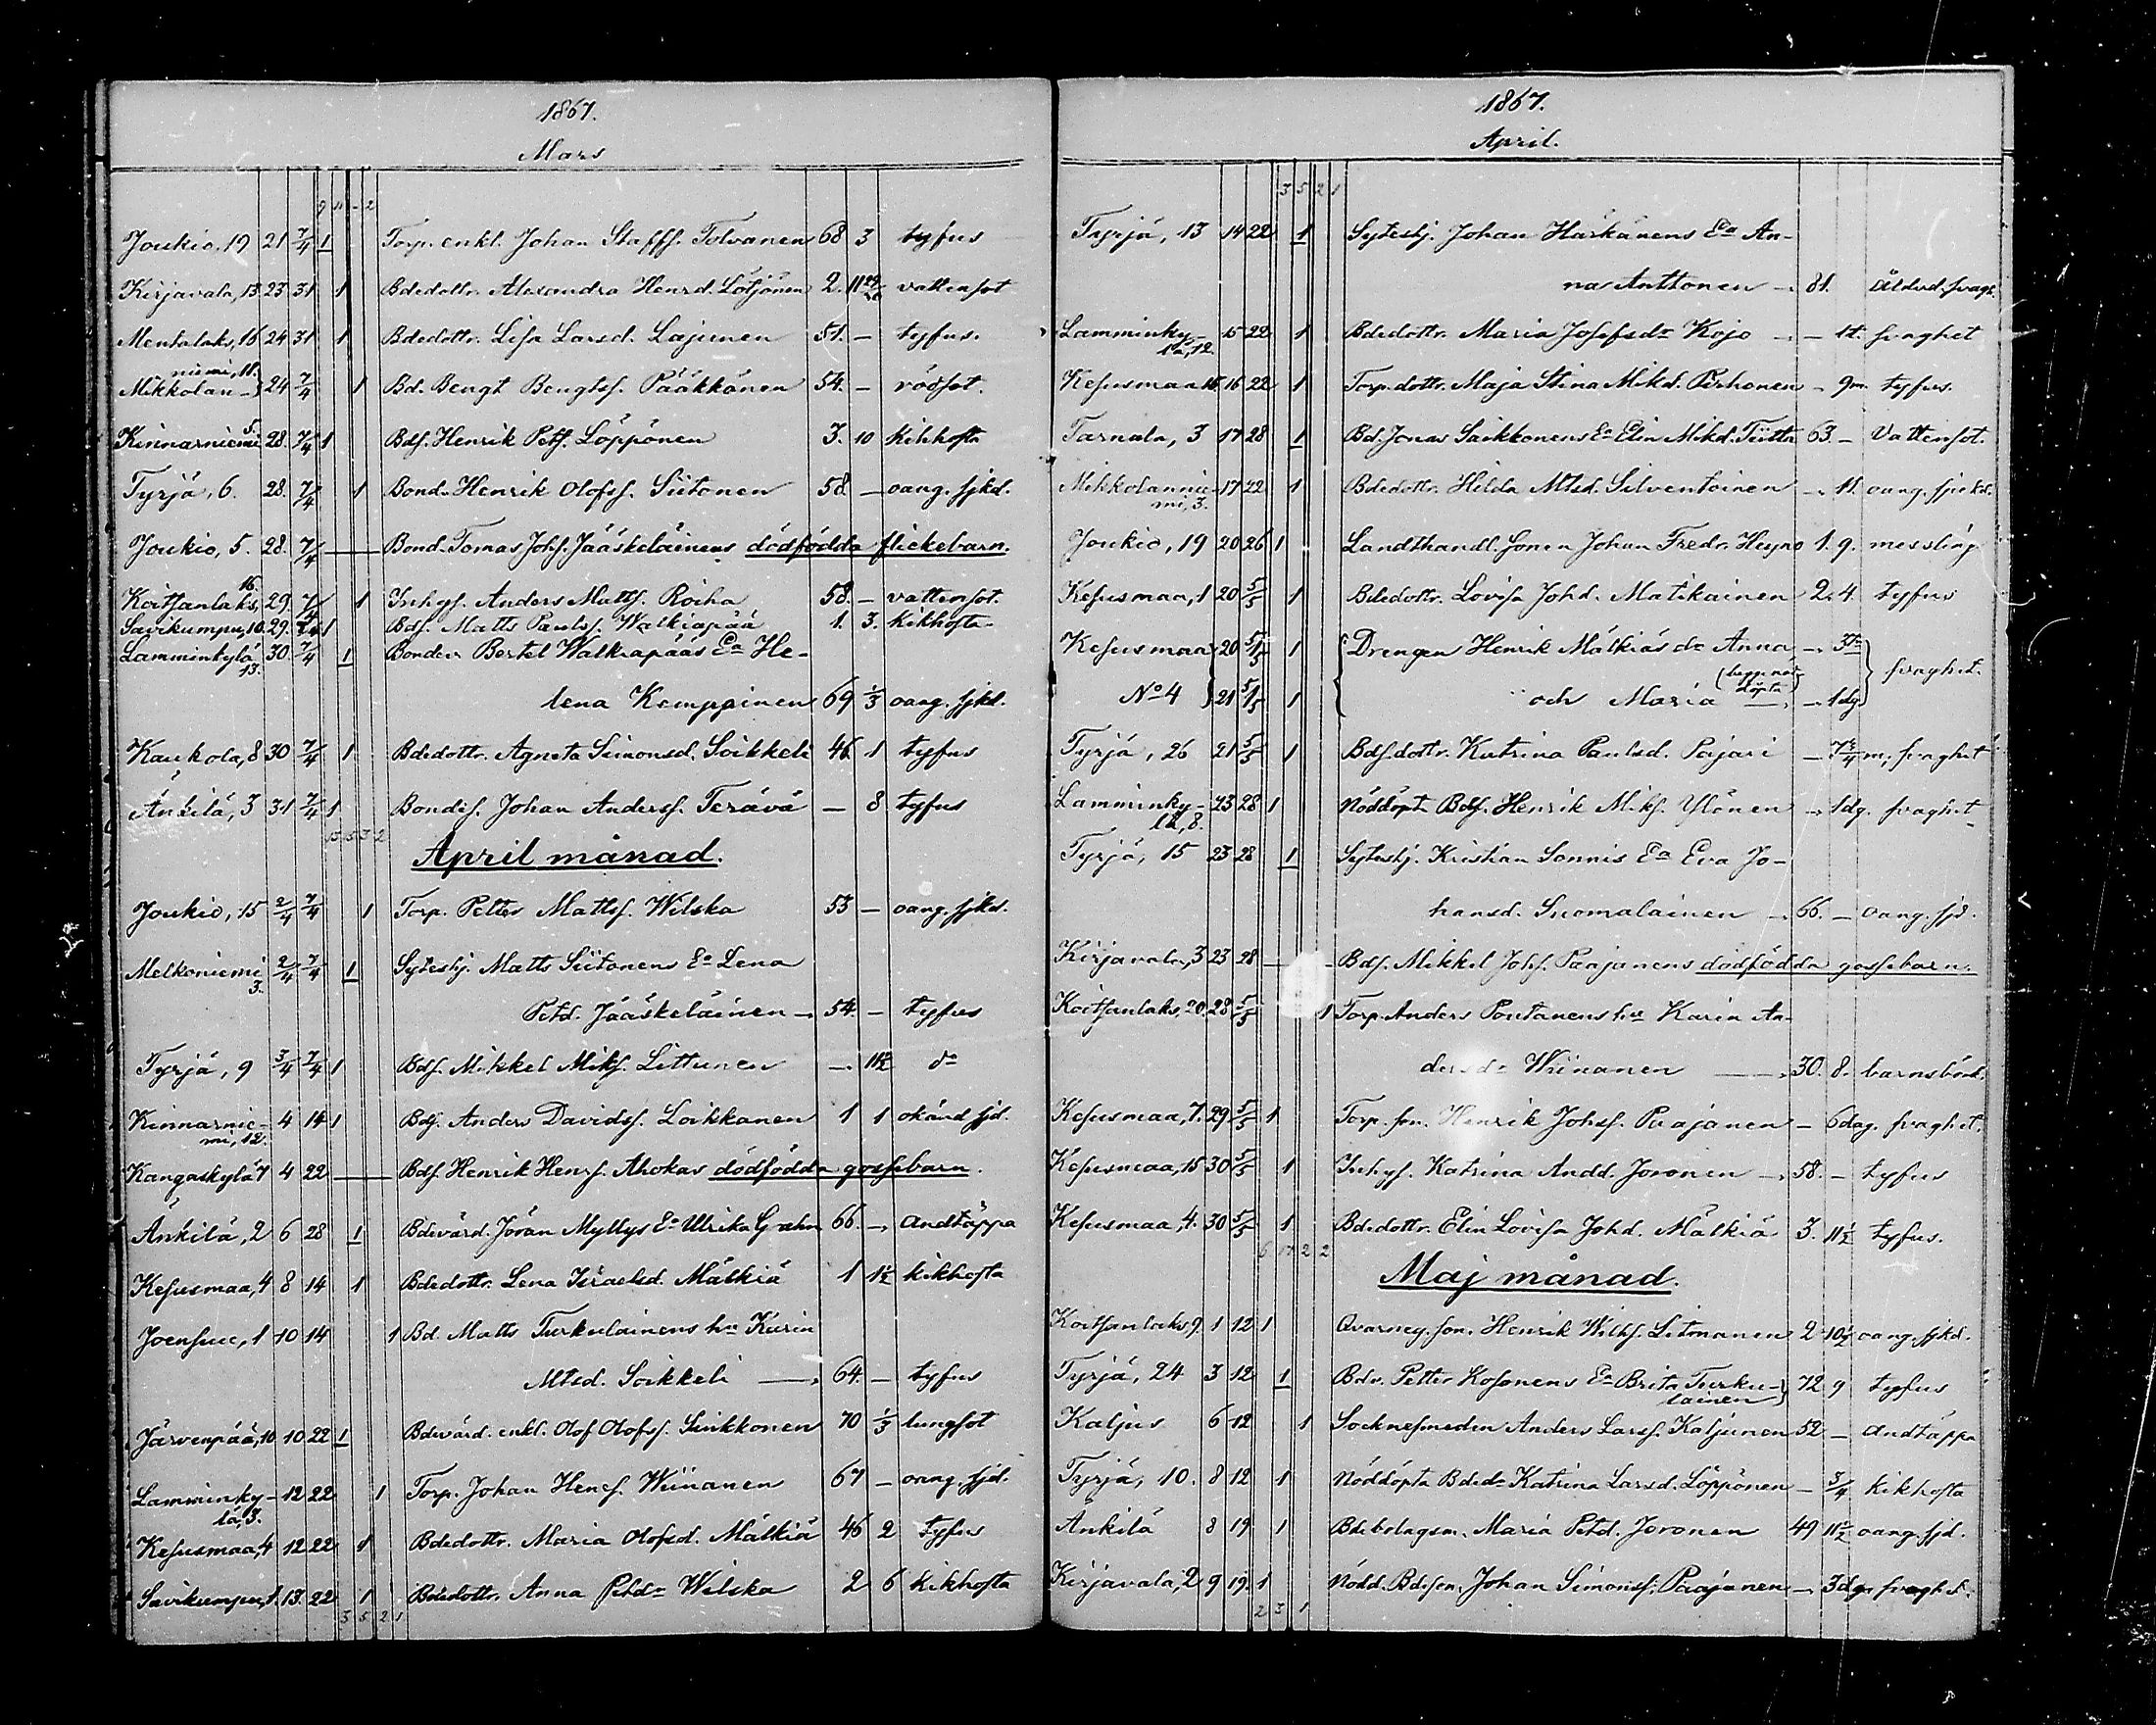 1867.
Mars
9 11 - 2
Joukio, 19 21 7/4 1 Torp. enkl. Johan Staffs. Tolvanen 68 3 tyfus
Kirjavala, 13 23 31 1 Bdedottr. Alexandra Henrd. Lötjönen 2. 11 vattensot
Mentalaks, 16 24 31 1 Bdedottr. Lisa Larsd. Lajunen 51. – tyfus.
Mikkolan-niemi, 11. 24 7/4 1 Bd. Bengt Bengtss. Pääkkönen 54. – rödsot.
Kinnarniemi 5. 28. 7/4 1 Bds. Henrik Pets. Löppönen 3. 10 Kikhosta
Tyrjä, 6. 28. 7/4 1 Bond. Henrik Olofss. Siitonen 58 – oang. sjkd.
Joukio, 5. 28. 7/4 — Bond. Tomas Johs. Jääskeläinens dödfödda flickebarn.
Koitsanlaks, 16. 29. 7/4 1 Inhys. Anders Matts. Roiha 58. – vattensot.
Savikumpu, 10. 29. 7/4 1 Bds. Matts Pauls. Walkiapää 1. 3. Kikhosta
Lamminkylä 13. 30 7/4 1 Bonden Bertel Walkiapääs Ea He-
lena Kemppinen 69 1/3 oang. sjkd.
Kaukola, 8 30 7/4 1 Bdedottr. Agneta Simonsd. Soikkeli 46 1 tyfus
Änkilä, 3 31 7/4 1 Bondes. Johan Anderss. Terävä – 8 tyfus
13 5 3 2
April månad.
Joukio, 15 2/4 7/4 1 Torp. Petter Mattss. Wilska 53 – oang. sjkd.
Melkoniemi 3. 2/4 7/4 1 Syteshj. Matts Siitonens Ea Lena
Petd. Jääskeläinen – 54. – tyfus
Tyrjä, 9 3/4 7/4 1 Bds. Mikkel Miks. Littunen – 11 1/2 do
Kinnarnie-mi, 12. 4 14 1 Bds. Anders Davidss. Loikkanen 1 1 okänd sjd.
Kangaskylä 7 4 22 — Bds. Henrik Henrs. Ahokas dödfödda gossebarn.
Änkilä, 2 6 28 1 Bdevärd. Jöran Myllys Ea Ulrika Grahn 66. – Andtäppa
Kesusmaa, 4 8 14 1 Bdedottr. Lena Israelsd. Mälkiä 1 1 1/2 kikhosta
Joensuu, 1 10 14 1 Bd. Matts Turkulainens hu Karin
Mtsd. Soikkeli — 64. – tyfus
Järvenpää, 10 10 22 1 Bdevärd. enkl. Olof Olofss. Sinkkonen 70 1/3 lungsot
Lamminky-lä, 3. 12 22 1 Torp. Johan Henrs. Wiinanen 67 – oang. sjd.
Kesusmaa, 4 12 22 1 Bdedottr. Maria Olofsd. Mälkiä 46 2 tyfus
Savikumpu, 1. 13. 22 1 Bdedottr. Anna Petdr Wilska 2 6 Kikhosta
3 5 2 1
1867.
April.
3 5 2 1
Tyrjä, 13 14 22 1 Syteshj. Johan Härkänens Ea An-
na Anttonen – 81. ålderd. svagh.
Lamminky-lä, 12. 15 22 1 Bdedottr. Maria Josefsdr Kojo – – 1t. svaghet
Kesusmaa 15 16 22 1 Torp. dottr. Maja Stina Mikd. Pirhonen – 9m. tyfus.
Tarnala, 3 17 28 1 Bd. Jonas Saikkonens Ea Elin Mikd. Tiitta 63. – Vattensot.
Mikkolannie-mi, 3. 17 22 1 Bdedottr. Hilda Mtsd. Silventoinen – 11. oang. sjukd.
Joukio, 19 20 26 1 Landthandl. sonen Johan Fredr. Heyno 1. 9. messling
Kesusmaa, 1 20 5/5 1 Bdedottr. Lovisa Johd. Matikainen 2. 4. tyfus
Kesusmaa 20 5/5 1 Drengen Henrik Mälkiäs dr Anna –
No 4 21 5/5 1 och Maria (begge nöddöpta) – 1 dg svaghet.
Tyrjä, 26 21 5/5 1 Bds. dottr. Katrina Paulsd. Pajari – 7 3/4 m. svaghet
Lamminky-lä, 8. 23 28 1 Nöddöpt. Bds. Henrik Miks. Ylönen – 1 dg. svaghet
Tyrjä, 15 23 28 1 Syteshj. Kristian Sonnis Ea Eva Jo-
hansd. Suomalainen – 66. – oang. sjd.
Kirjavala, 3 23 28 — Bds. Mikkel Johs. Paajanens dödfödda gossebarn.
Koitsanlaks, 20. 28 5/5 1 Torp. Anders Pontanens hu Karin An-
dersdr Wiinanen — 30. 8. barnsbörd.
Kesusmaa, 7. 29. 5/5 1 Torp. son. Henrik Johss. Paajanen – 6 dag. svaghet.
Kesusmaa, 15 30 5/5 1 Inhys. Katrina Andd. Joronen – 58. – tyfus
Kesusmaa, 4. 30 5/5 1 Bdedottr. Elin Lovisa Johd. Mälkiä 3. 11 1/2 tyfus.
6 17 2 2
Maj månad.
Koitsanlaks, 9 1 12 1 Qvarneg. son. Henrik Wilhs. Litmanen 2 10 1/2 oang. sjkd.
Tyrjä, 24 3 12 1 Bdv. Petter Kosonens Ea Brita Turku-lainen 72 9 tyfus
Kaljus 6 12 1 Socknesmeden Anders Larss. Kaljunen 52 – Andtäppa
Tyrjä, 10. 8 12 1 Nöddöpta Bdedr Katrina Larsd. Löppönen – 3/4 kikhosta
Änkilä 8 19 1 Bdebolagsm. Maria Petd. Joronen 49 11 1/2 oang. sjd.
Kirjavala, 2 9 19. 1 Nödd. Bdeson, Johan Simonss. Paajanen – 3 dgr svaghet.
2 3 1